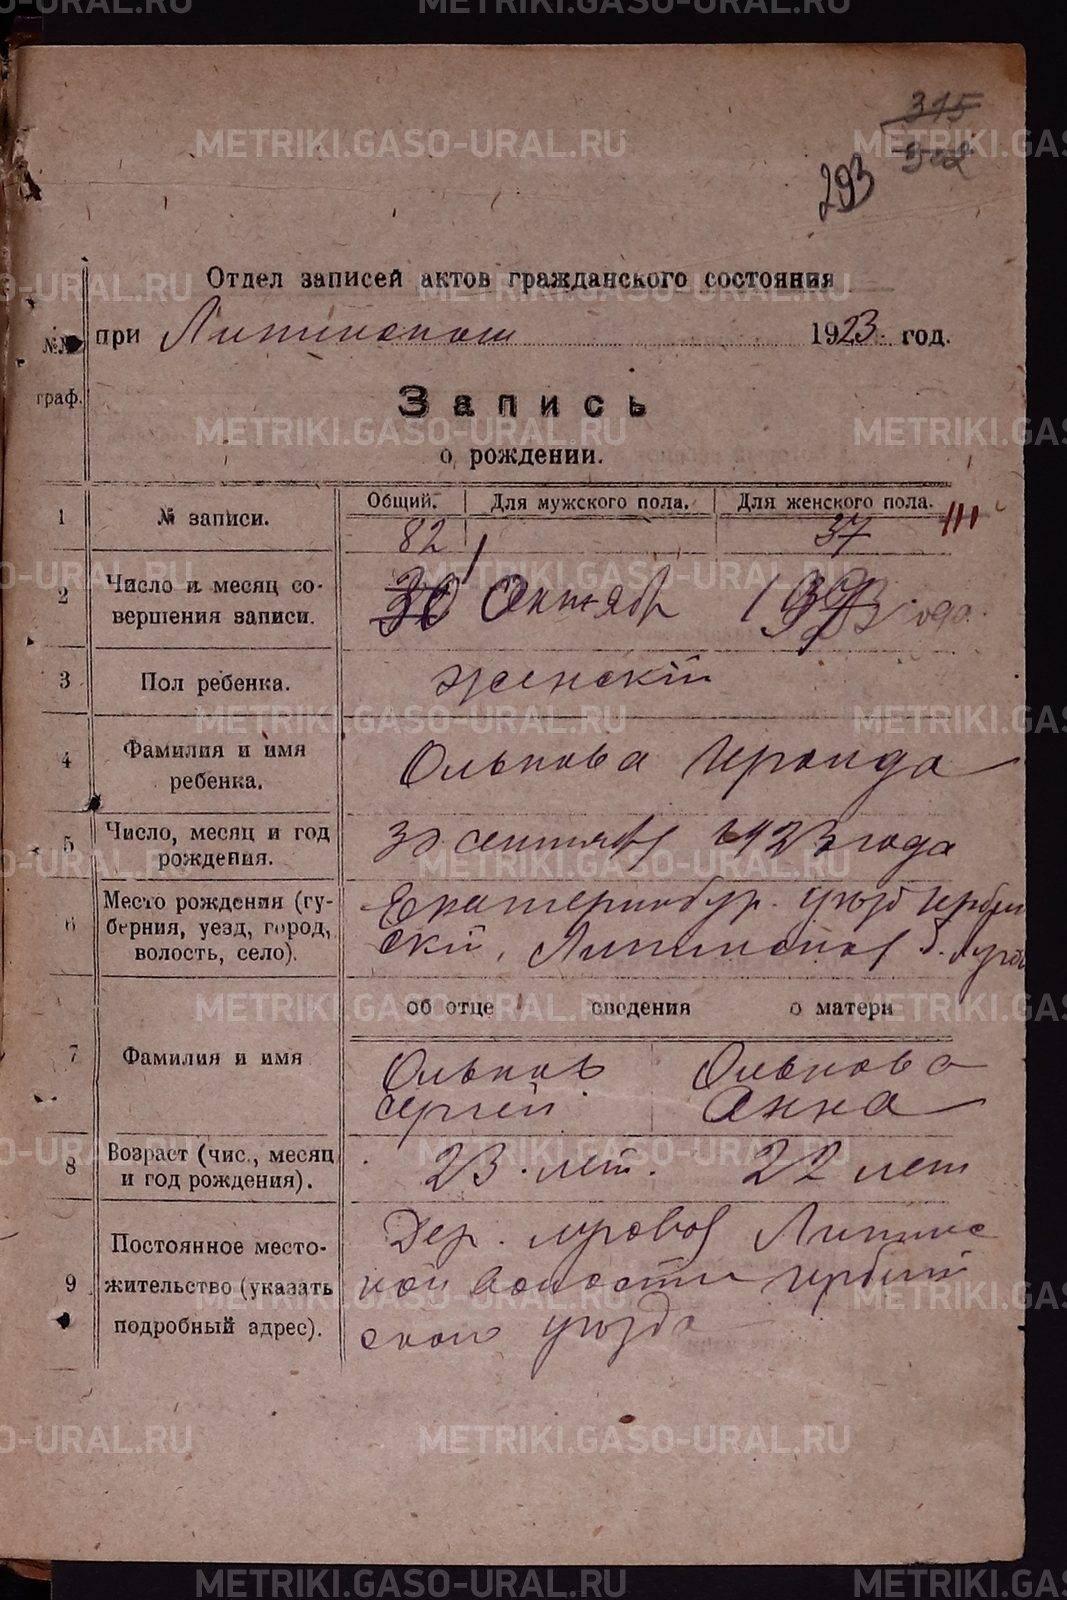 315
302
293
Отдел записей актов гражданского состояния
при Липинском 1923 год.
№№
граф.
Запись
о рождении.
1 № записи. Общий. Для мужского пола. Для женского пола.
82 37 111
2 Число и месяц со-
вершения записи.
1 Октября 1923 года.
3 Пол ребенка. женскій
4 Фамилия и имя
ребенка.
Олькова Ираида
5 Число, месяц и год
рождения.
30 сентября 1923 года
6 Место рождения (гу-
берния, уезд, город,
волость, село).
Екатеринбур. уезд Ирбит
ский,
об отце сведения о матери
7 Фамилия и имя
Ольков Олькова
Сергей Анна
8 Возраст (чис., месяц
и год рождения).
23 лет. 22 лет
9 Постоянное место-
жительство (указать
подробный адрес).
Дер. Липинс
кой волости Ирбит
ского уезда
METRIKI.GASO-URAL.RU